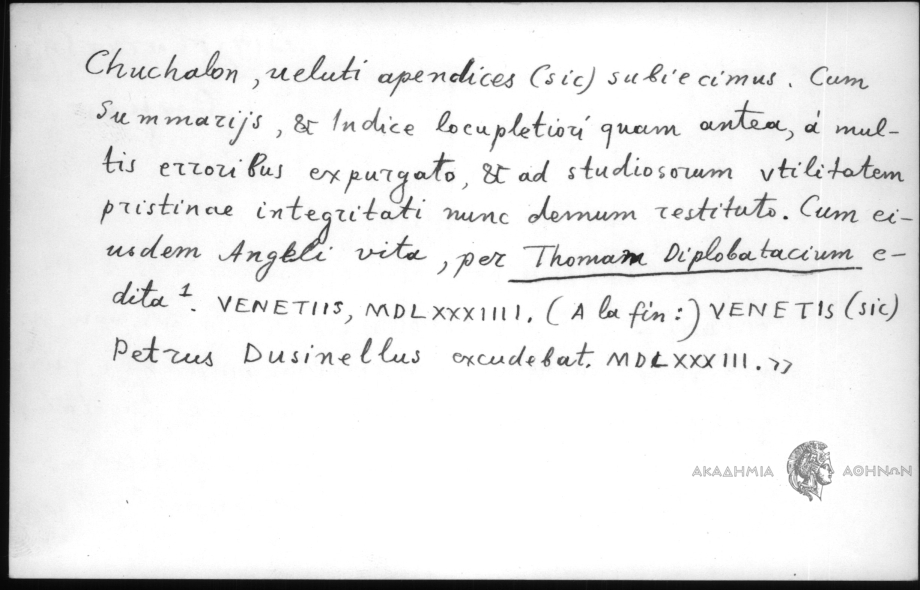 Chuchalon, ueluti apendices (sic) subiecimus. Cum
Summarijs, & Indice locupletiori quam antea, á mul-
tis erroribus expurgato, & ad studiosorum vtilitatem
pristinae integritati nunc demum restituto. Cum ei-
usdem Angeli vita, per Thomam Diplobatacium e-
dita ¹. VENETIIS, MDLXXXIIII. (A la fin:) VENETIS (sic)
Petrus Dusinellus excudebat. MDLXXXIII.»
ΑΚΑΔΗΜΙΑ ΑΘΗΝΩΝ